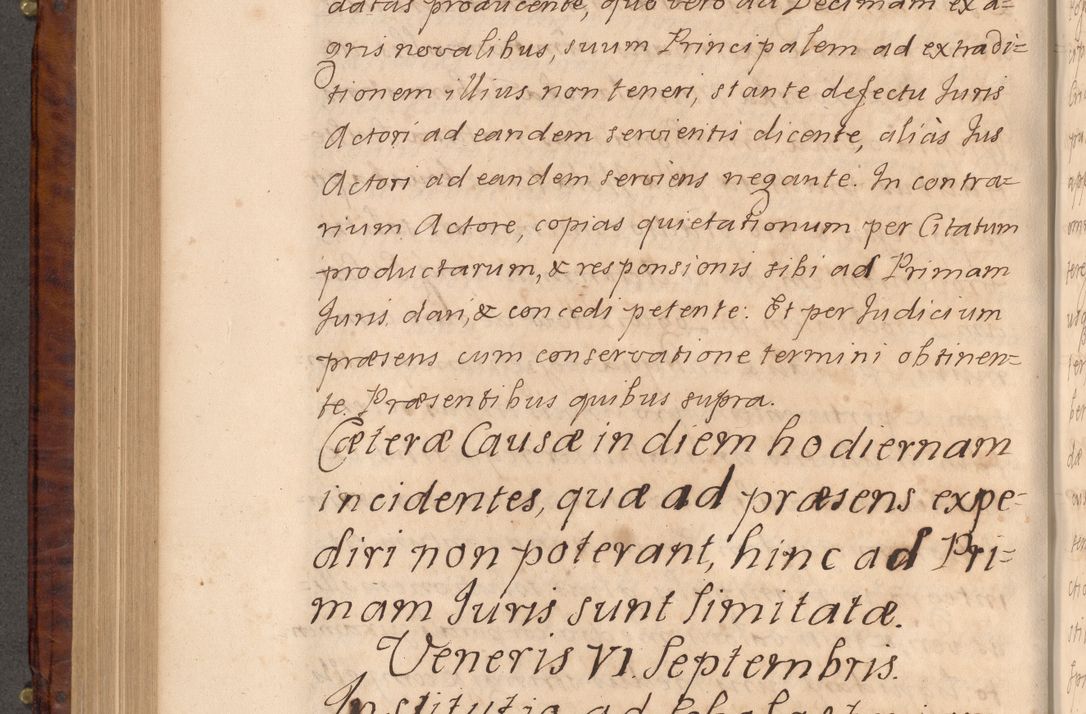 datas producente, quo vero ad Decimam ex a=
gris novalibus, suum Principalem ad extradi=
tionem illius non teneri, stante defectu Juris
Actori ad eandem servientis dicente, aliàs Jus
Actori ad eandem serviens negante. In contra=
rium Actore, copias quietationum per Citatum
productarum, & responsionis sibi ad Primam
Juris dari, & concedi petente. Et per Judicium
præsens cum conservatione termini obtinen=
te. Præsentibus quibus supra.
Cæteræ Causæ in diem hodiernam
incidentes, quæ ad præsens expe=
diri non poterant, hinc ad Pri=
mam Juris sunt limitatæ.
Veneris VI. Septembris.
Institutio ad